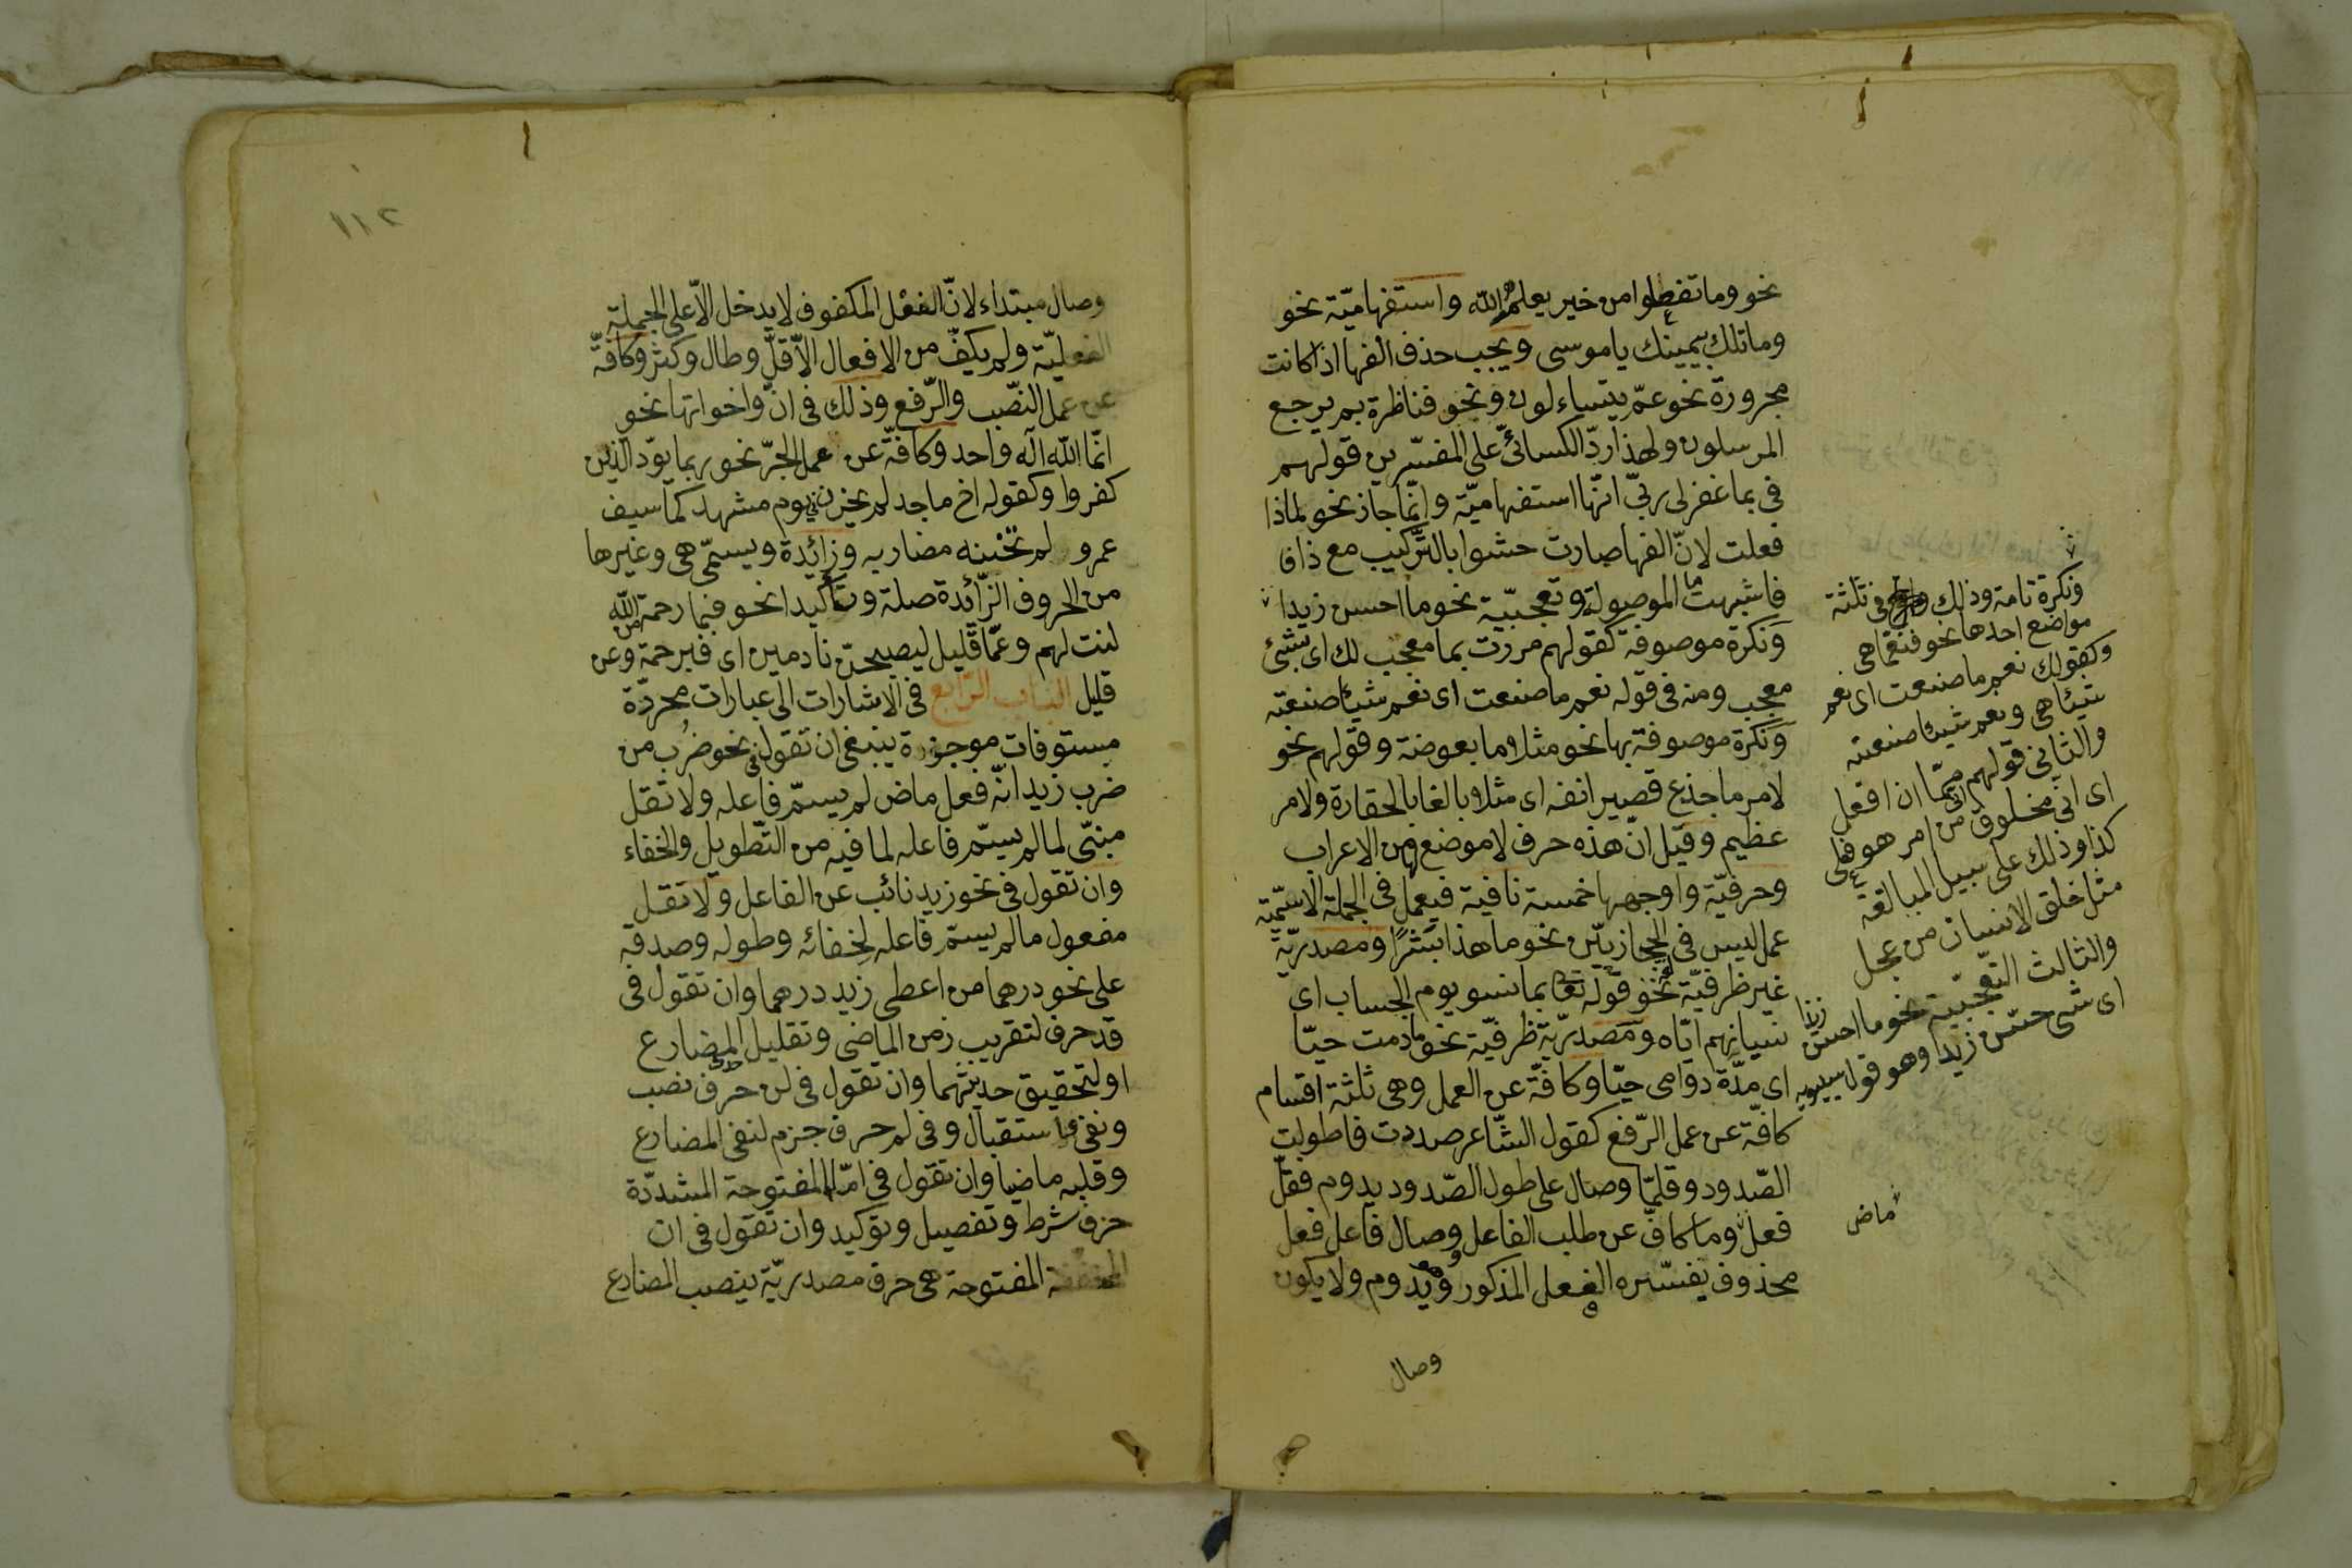 نحو وما تفعلوا من خير يعلمه الله واستفهاميّة نحو
وما تلك بيمينك يا موسى ويجب حذف الفها اذا كانت
مجرورة نحو عمّ يتساءلون ونحو فناظرة بم يرجع
المرسلون ولهذا ردّ الكسائىّ على المفسّرين قولهم
فى بما غفر لى ربّى انّها استفهاميّة وانّما جاز نحو لماذا
فعلت لانّ الفها صارت حشوا بالتّركيب مع ذا فا
فاشبهت ما الموصولة وتعجّبيّة نحو ما احسن زيدا
ونكرة موصوفة كقولهم مررت بما معجب لك اى بشئ
معجب ومنه فى قوله نعم ما صنعت اى نعم شيئا صنعته
ونكرة موصوفة بها نحو مثلا ما بعوضة وقولهم نحو
لامر ما جذع قصير انفه اى مثلا بالغا بالحقارة ولامر
عظيم وقيل انّ هذه حرف لا موضع لها من الاعراب
وحرفيّة واوجهها خمسة نافية فيعمل فى الجملة الاسميّة
عمل ليس فى الحجازيّين نحو ما هذا بشرًا ومصدريّة
غير ظرفيّة نحو قوله تعا بما نسو يوم الحساب اى
نسيانهم ايّاه ومصدريّة ظرفيّة نحو ما دمت حيّا
اى مدّة دوامى حيّا وكافّة عن العمل وهى ثلثة اقسام
كافّة عن عمل الرّفع كقول الشّاعر صددت فاطولت
الصّدود وقلمّا وصال على طول الصّدود يدوم فقلّ
فعل وما كافّ عن طلب الفاعل وصال فاعل فعل
محذوف يفسّره الفعل المذكور وهو يدوم ولا يكون
وصال
ونكرة تامة وذلك فى ثلثة
مواضع احدها نحو فنعمّا هى
وكقولك نعم ما صنعت اى نعم
شيئا هى ونعم شيئا صنعته
والثانى قولهم انى ممّا ان افعل
اى انى مخلوق من امر هو فعلى
كذا وذلك على سبيل المبالغة
مثل خلق الانسان من عجل
والثالث التعجّبيّة نحو ما احسن زيدًا
اى شئ حسّن زيدا وهو قول سيبويه
ماض
١١٢
وصال مبتداء لانّ الفعل المكفوف لا يدخل الاّ على الجملة
الفعليّة ولم يكفّ من الافعال الاّ قلّ وطال وكثر وكافّة
عن عمل النّصب والرّفع وذلك فى انّ واخواتها نحو
انّما الله اله واحد وكافّة عن عمل الجرّ نحو ربما يودّ الذين
كفروا وكقوله اخ ماجد لم يخزنى يوم مشهد كما سيف
عمرو لم تخنه مضاربه وزائدة ويسمّى هى وغيرها
من الحروف الزّائدة صلة وتأكيدا نحو فبما رحمة من الله
لنت لهم وعمّا قليل ليصبحنّ نادمين اى فبرحمة وعن
قليل الباب الرّابع فى الاشارات الى عبارات محرّدة
مستوفات موجزة ينبغى ان تقول فى نحو ضُرب من
ضرب زيد انّه فعل ماض لم يسمّ فاعله ولا تقل
مبنّى لما لم يسمّ فاعله لما فيه من التّطويل والخفاء
وان تقول فى نحو زيد نائب عن الفاعل ولا تقل
مفعول ما لم يسمّ فاعله لخفائه وطوله وصدقه
على نحو درهما من اعطى زيد درهما وان تقول فى
قد حرف لتقريب زمن الماضى وتقليل المضارع
او لتحقيق حديثهما وان تقول فى لن حرف نصب
ونفى استقبال وفى لم حرف جزم لنفى المضارع
وقلبه ماضيا وان تقول فى امّا المفتوحة المشدّدة
حرف شرط وتفصيل وتوكيد وان تقول فى ان
المخففة المفتوحة هى حرف مصدريّة ينصب المضارع